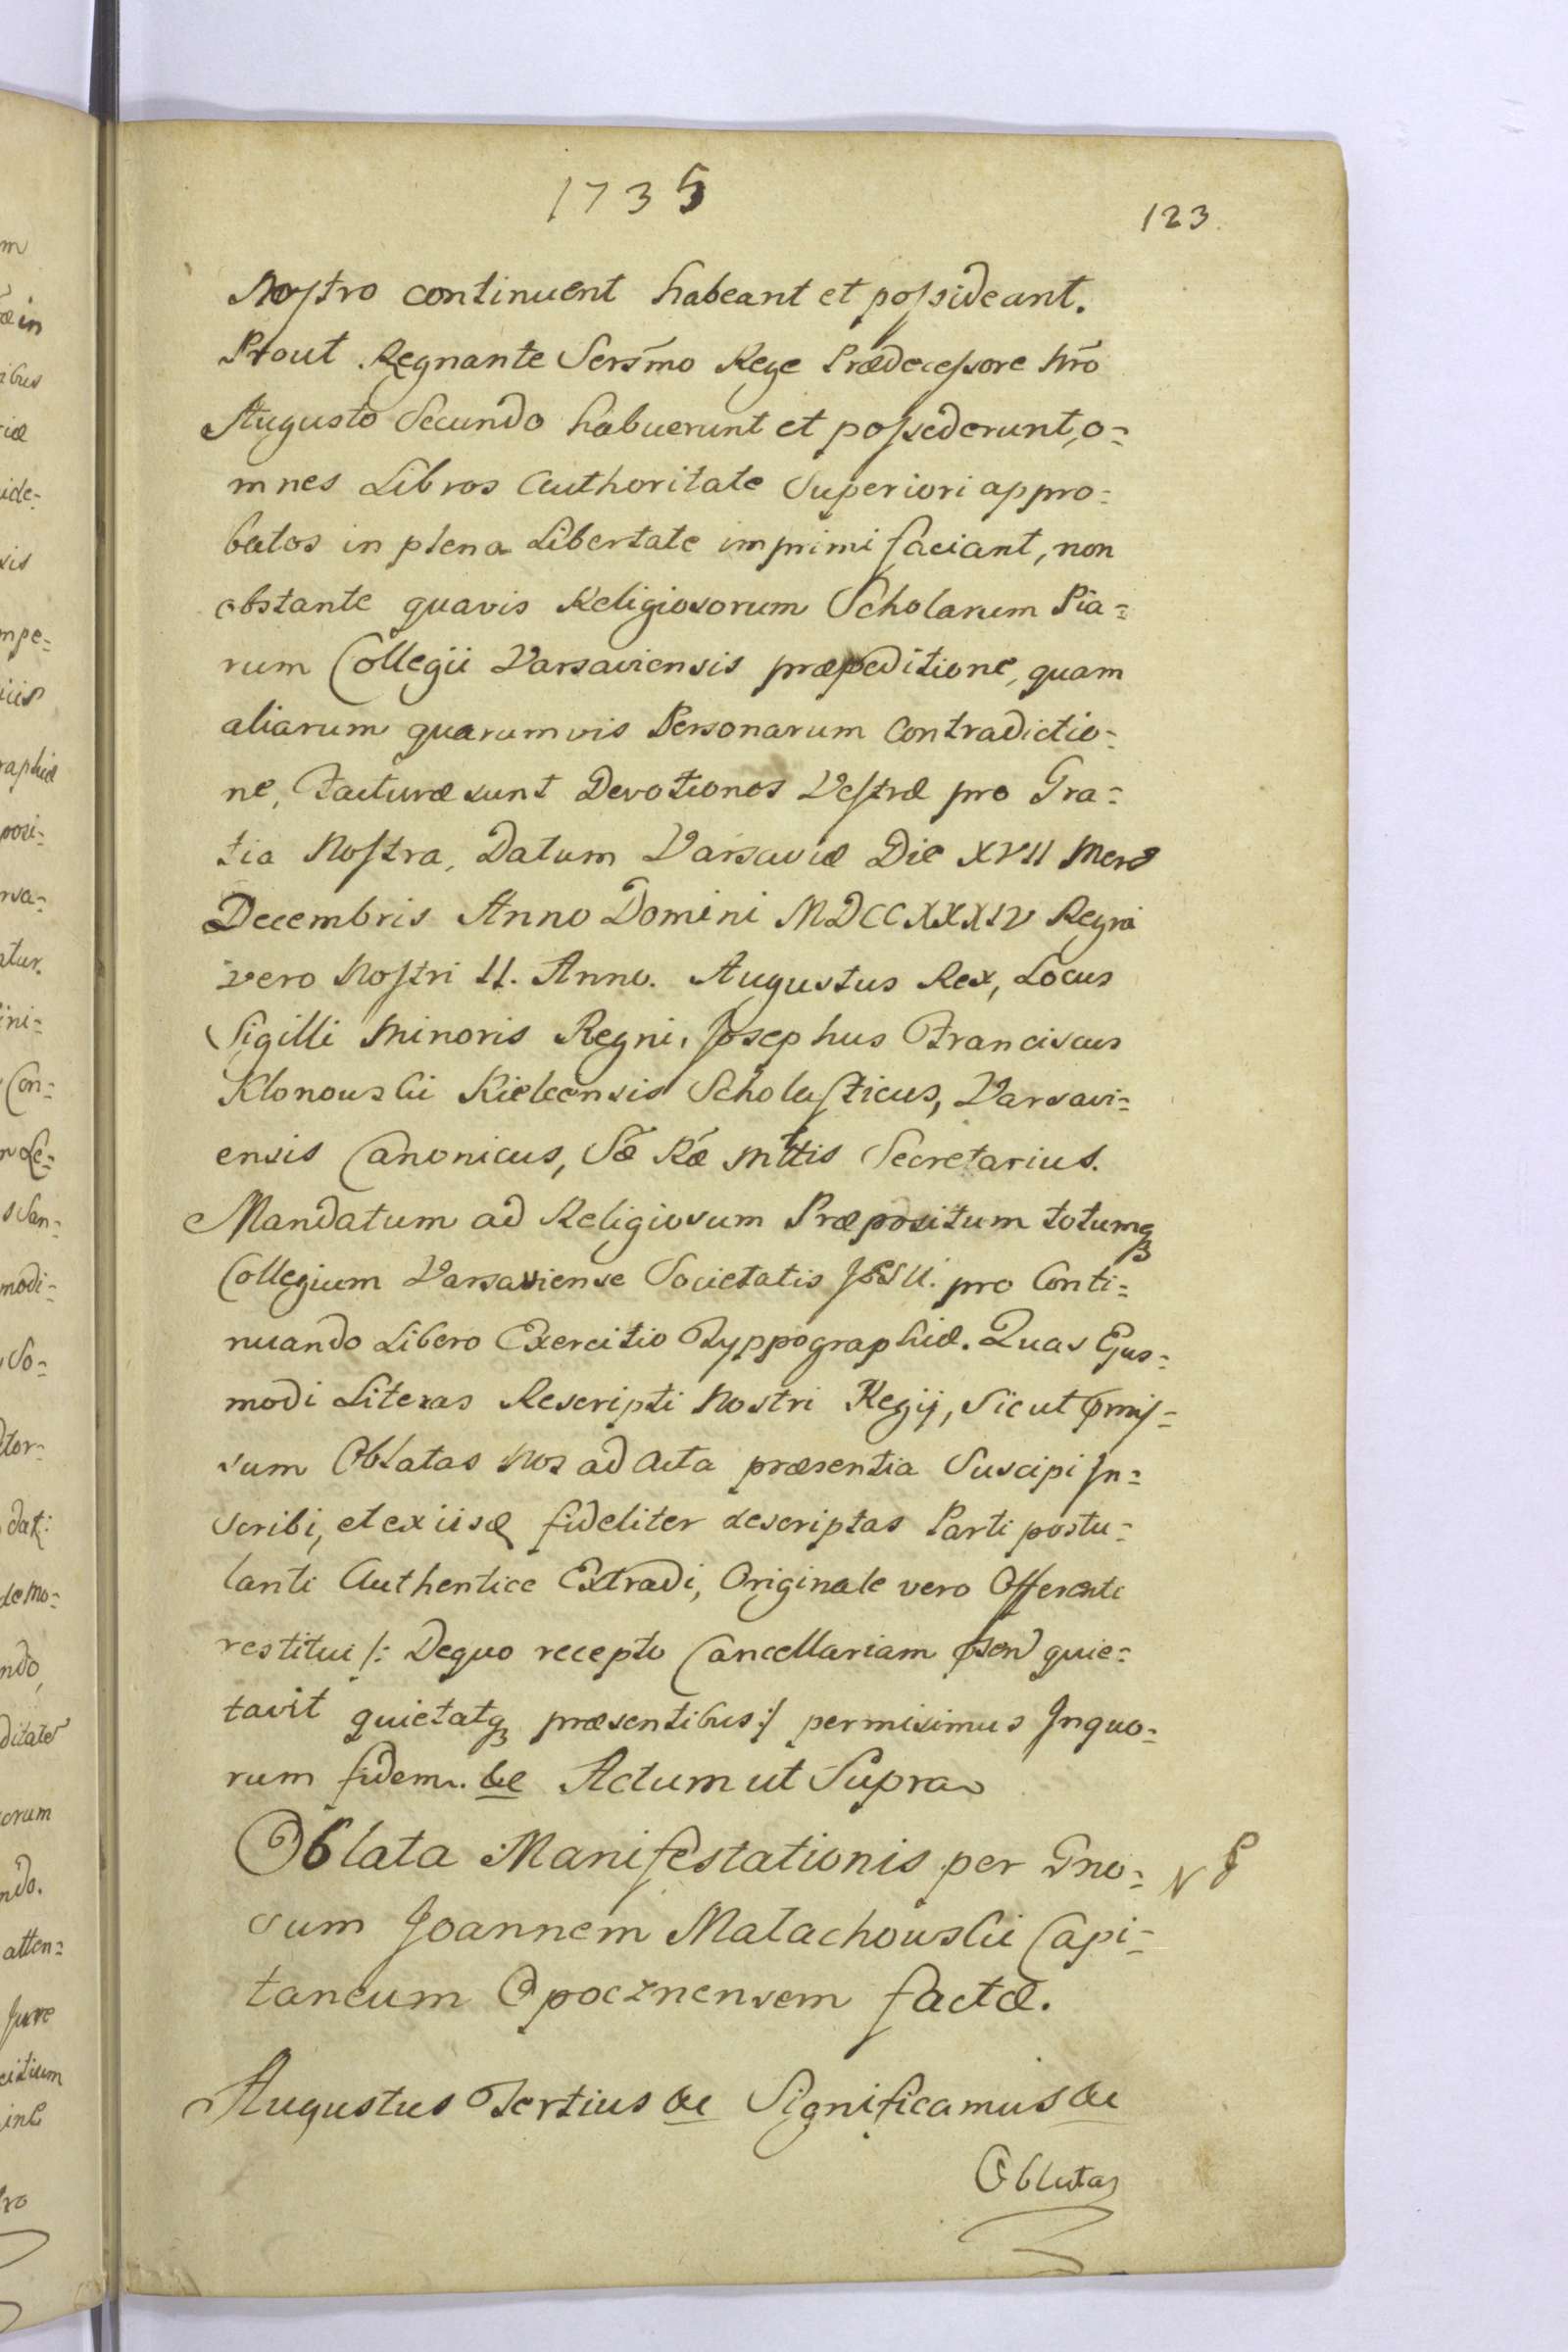 1735
123.
Nostro continuent habeant et possideant.
Prout Regnante Sersm̄o Rege Prædecessore Nr̄o
Augusto Secundo habuerunt et possederunt, o=
mnes Libros Authoritate Superiori appro=
batos in plena Libertate imprimi faciant, non
obstante quavis Religiosorum Scholarum Pia=
rum Collegii Varsaviensis præpeditione, quam
aliarum quarumvis Personarum Contradictio=
ne, Facturæ sunt Devotiones Vestræ pro Gra=
tia Nostra, Datum Varsaviæ Die XVII Mens
Decembris Anno Domini MDCCXXXIV Regni
vero Nostri II. Anno. Augustus Rex, Locus
Sigilli Minoris Regni, Josephus Franciscus
Klonowski Kielcensis Scholasticus, Varsavi=
ensis Canonicus, Sæ Ræ Mttis Secretarius.
Mandatum ad Religiosum Præpositum totumq
Collegium Varsaviense Societatis JESU. pro Conti=
nuando Libero Exercitio Typpographiæ. Quas Ejus=
modi Literas Rescripti Nostri Regij, Sicut pmis=
sum Oblatas Nos ad Acta præsentia Suscipi In=
scribi, et ex iisd fideliter descriptas Parti postu=
lanti Authentice Extradi, Originale vero Offerenti
restitui /: Dequo recepto Cancellariam psen quie=
tavit quietatq præsentibus :/ permisimus Inquo=
rum fidem. &c Actum ut Supra
Oblata Manifestationis per Gno=
sum Joannem Małachowski Capi=
taneum Opocznensem factæ.
N 8
Augustus Tertius &c Significamus &c
Oblatas